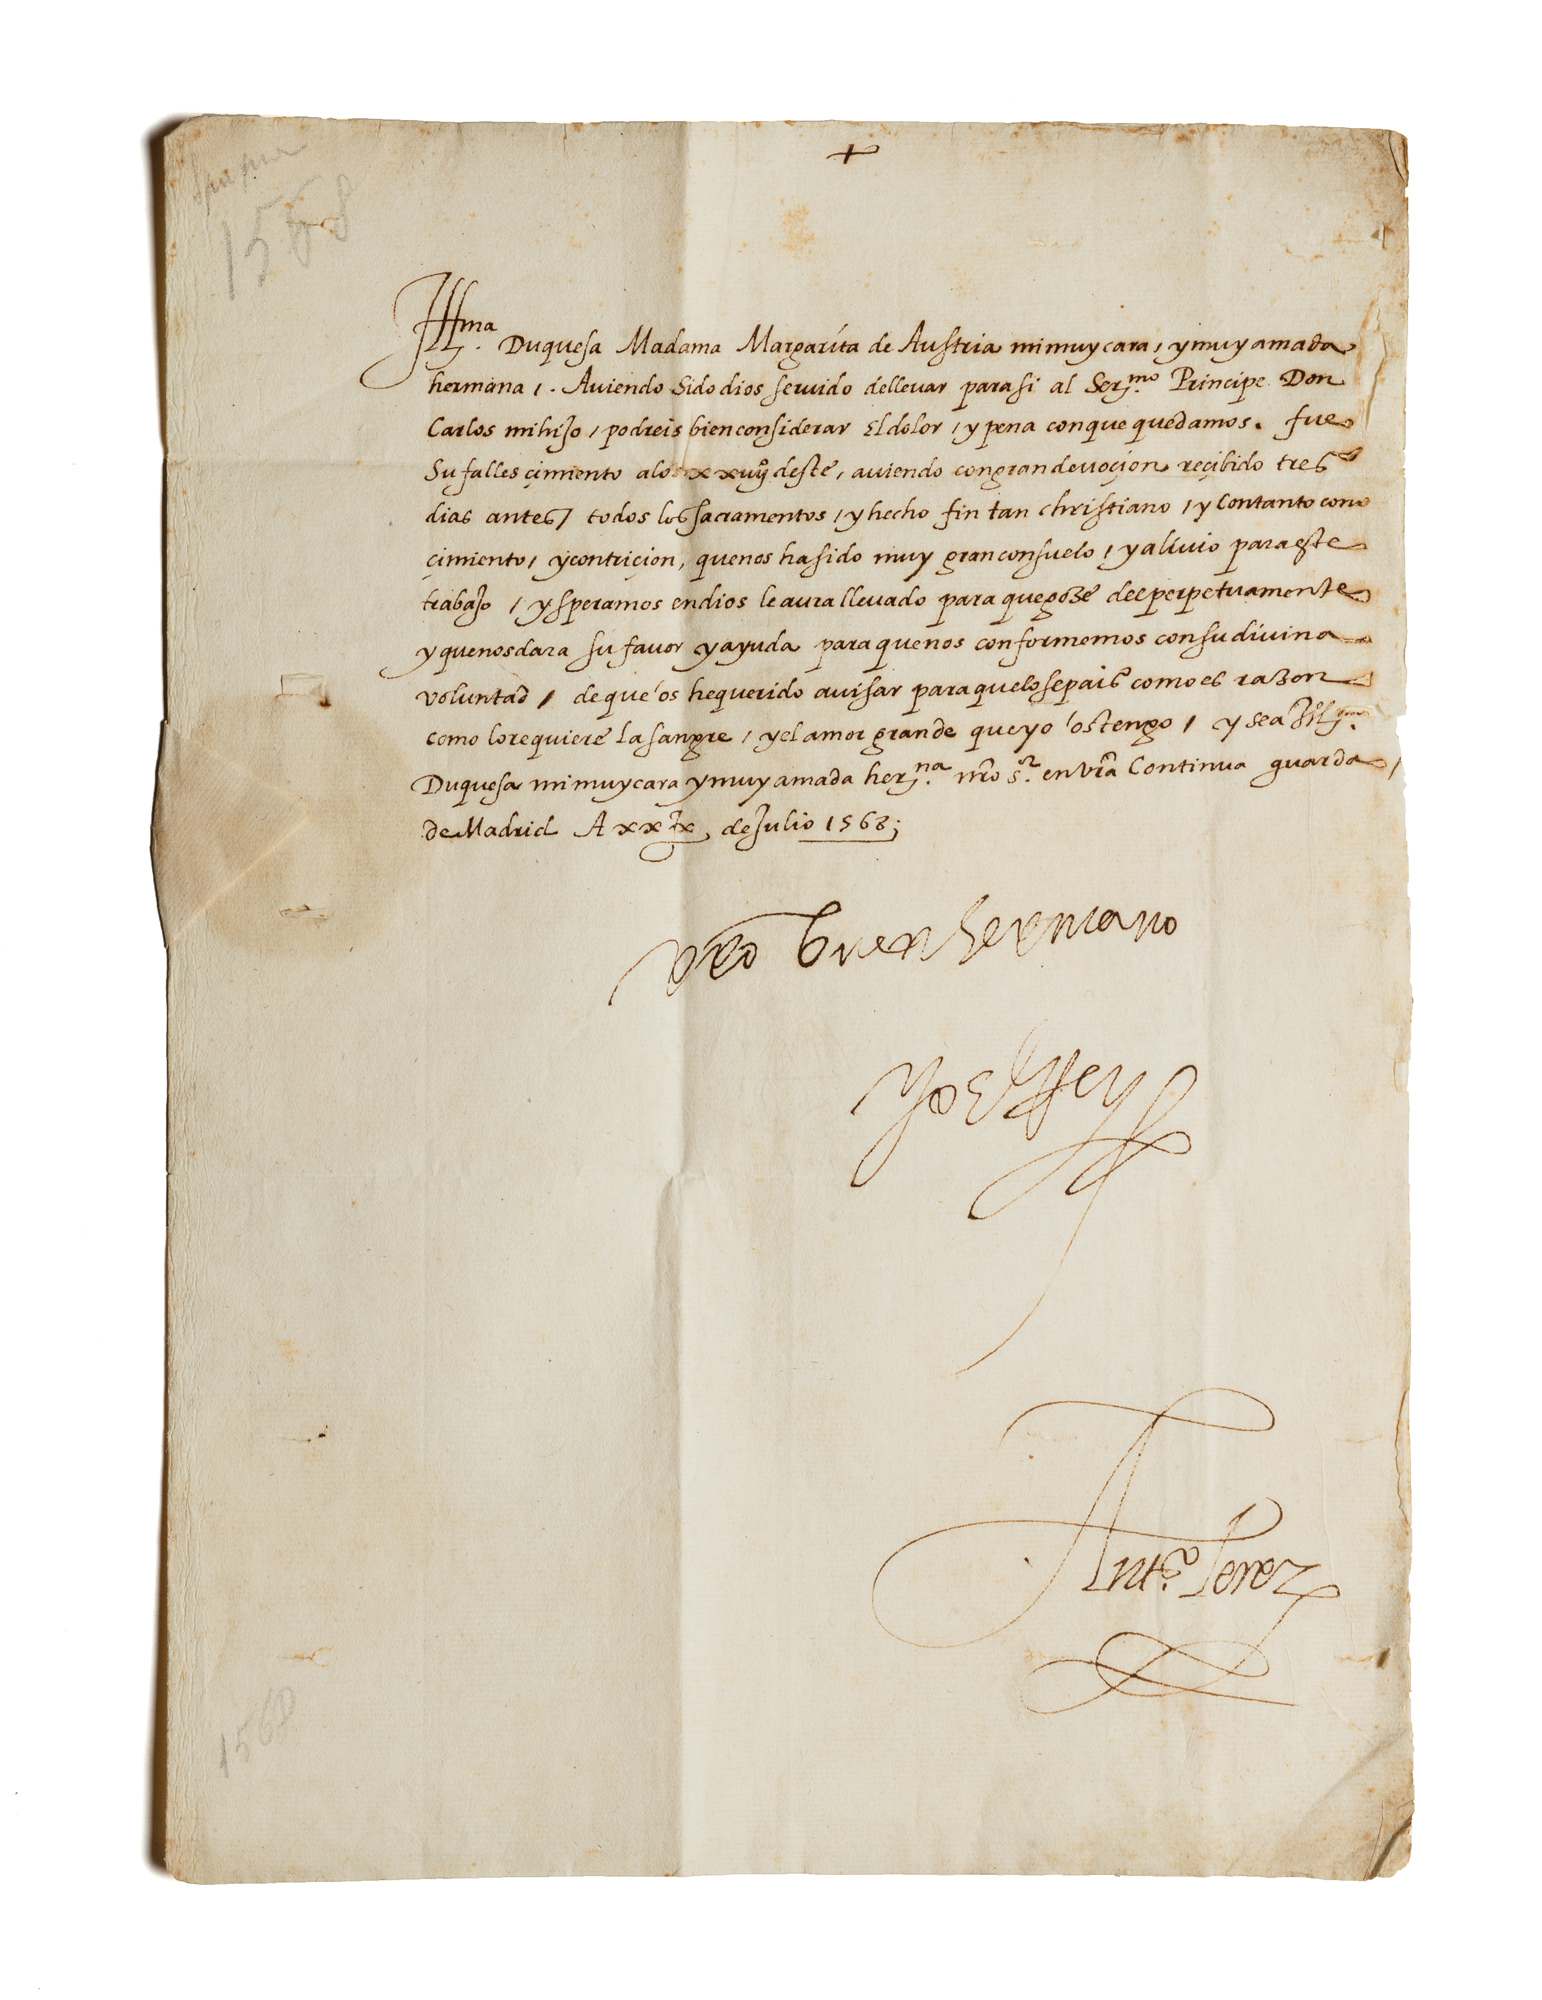 +
1568
Illma. Duquesa Madama Margarita de Austria mi muy cara, y muy amada
hermana,. Aviendo sido dios seruido de lleuar para si al Sermo. Principe Don
Carlos mi hijo, podreis bien considerar El dolor, y pena con que quedamos. fue
Su fallesçimiento a los xxiiijo deste, auiendo con gran deuoçion reçibido tres
dias antes, todos los sacramentos, y hecho fin tan christiano, y Con tanto cono
çimiento, y contriçion, que nos ha sido muy gran consuelo, y aliuio para este
trabajo, y speramos en dios le aura lleuado para que goze del perpetuamente
y que nos dara su fauor y ayuda para que nos conformemos con su diuina
voluntad, de que os he querido auisar para que lo sepais como es razon
como lo requiere La sangre, y el amor grande que yo os tengo, y sea Illma.
Duquesa mi muy cara y muy amada herna. nro sr. en vra Continua guarda,
de Madrid A xxix, de Julio 1568;
vro buen hermano
Yo El Rey
Anto. Perez
1568